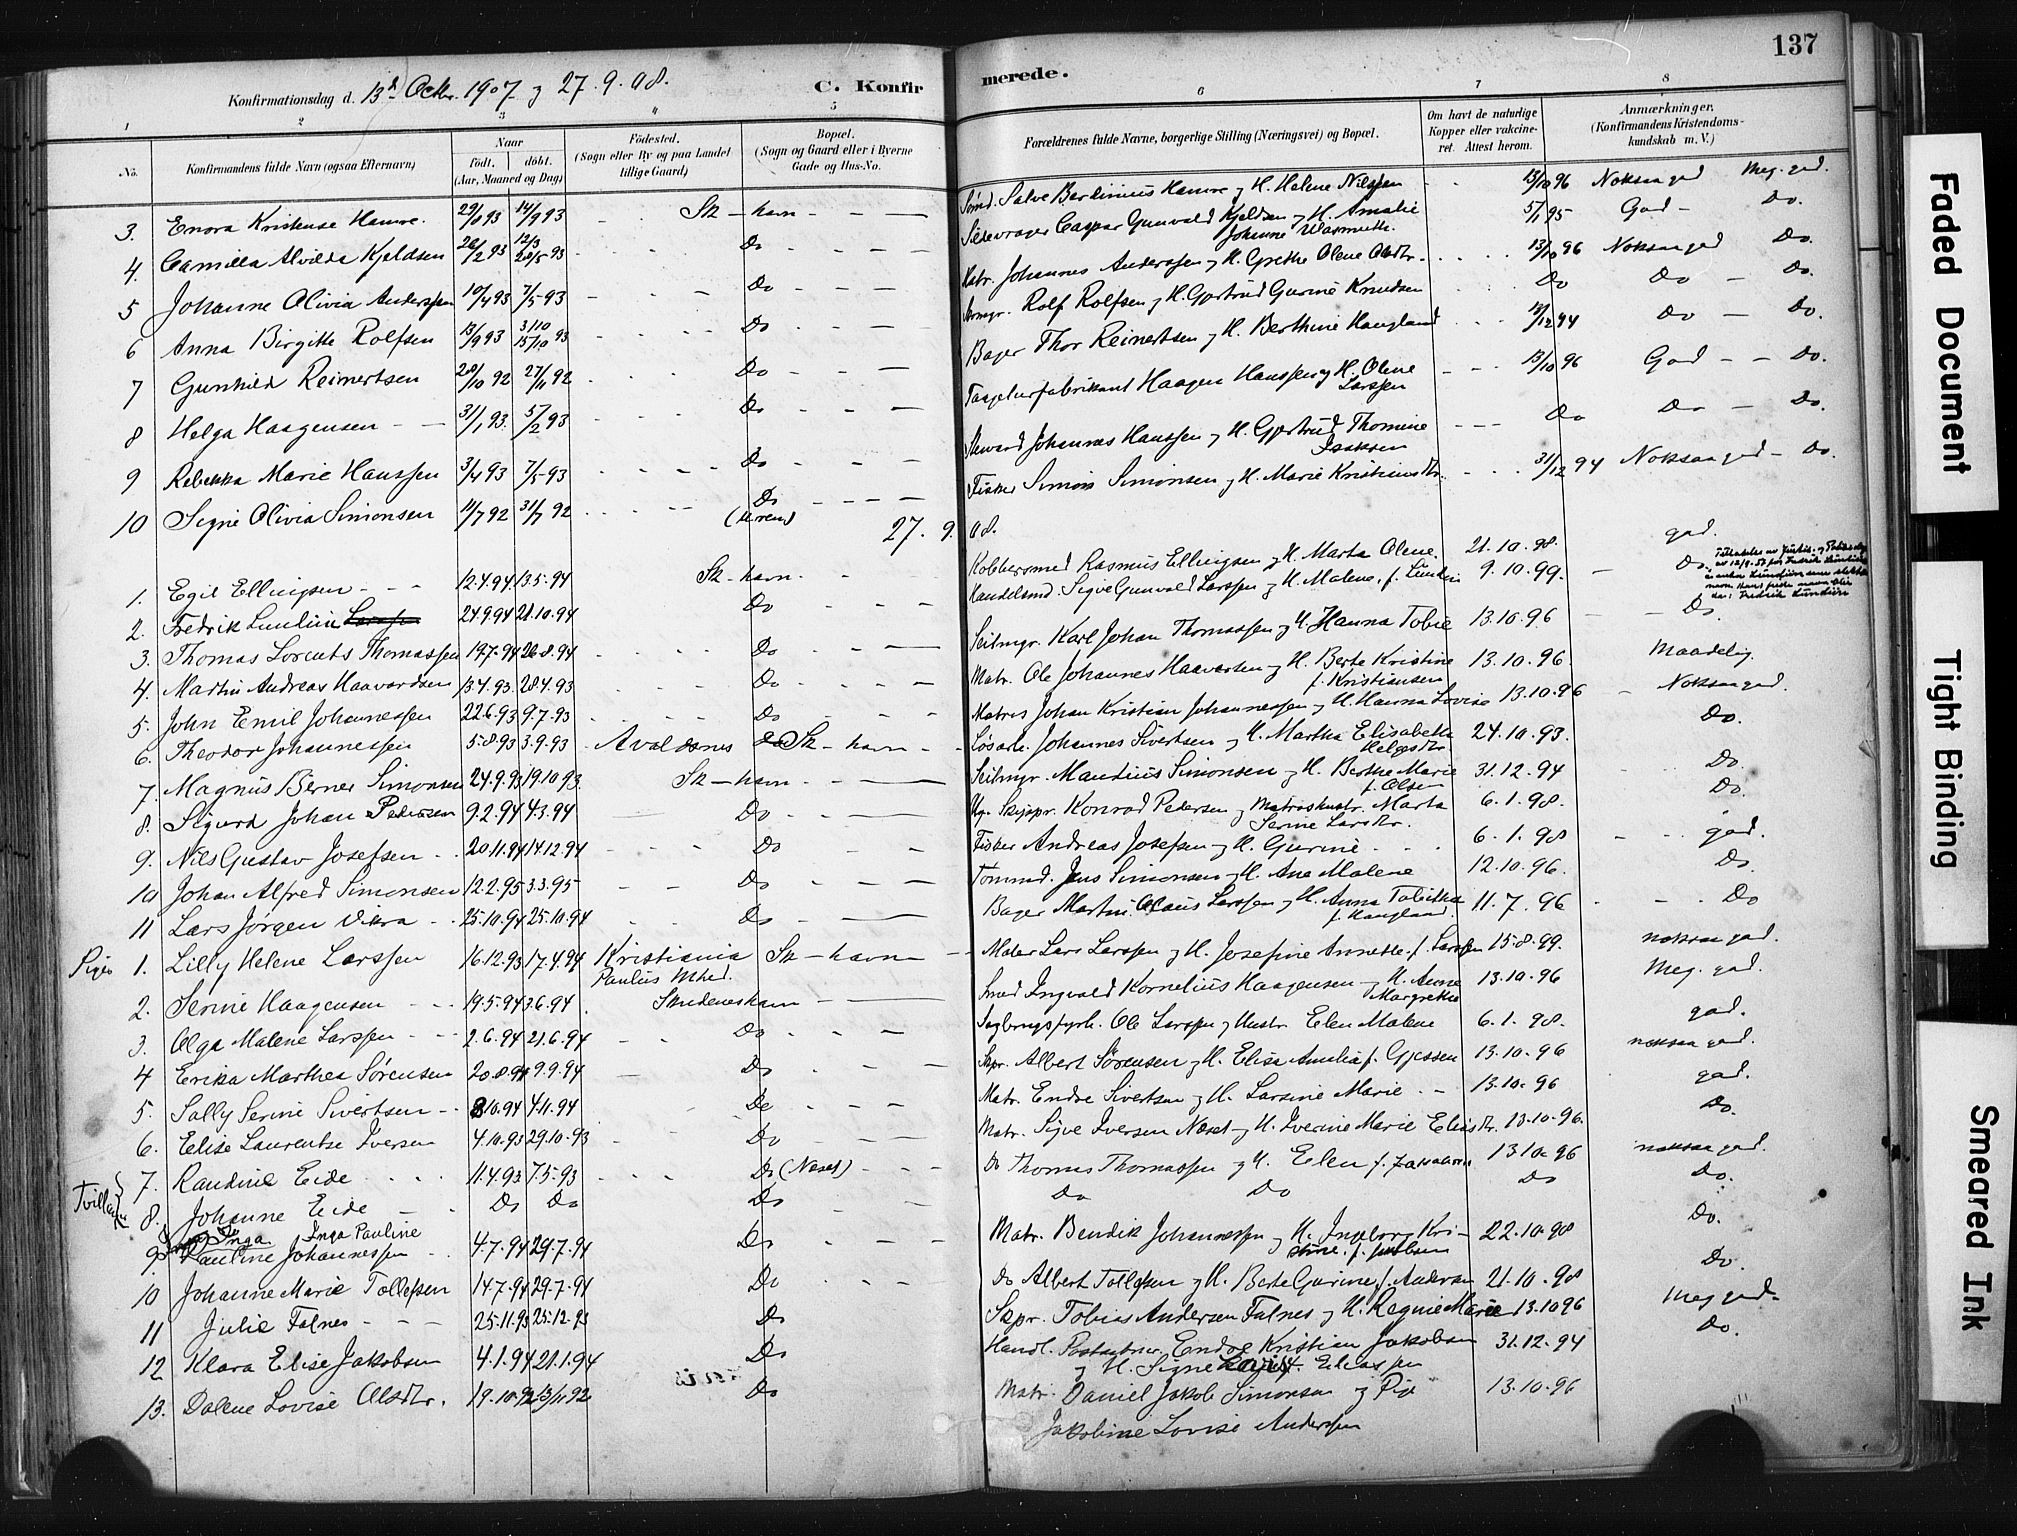 137
Konfirmationsdag d. 13d Octbr. 1907 og 27.9.08.
C. Konfirmerede.
1 2 3 4 5 6 7 8
No.
Konfirmandens fulde Navn (ogsaa Efternavn)
Naar
født. døbt.
(Aar, Maaned og Dag)
Fødested.
(Sogn eller By og paa Landet tillige Gaard)
Bopæl.
(Sogn og Gaard eller i Byerne Gade og Hus-No.
Forældrenes fulde Navne, borgerlige Stilling (Næringsvei) og Bopæl.
Om havt de naturlige Kopper eller vakcineret. Attest herom.
Anmærkninger.
(Konfirmandens Kristendomskundskab m. V.)
3. Enora Kristense Hamre. 29/1093 14/993 Sk-havn Salve Berdinius Hamre og H. Helene Nilssen 13/10 96 Noksaa god Meg. god.
4. Camilla Alvilde Kjeldsen 26/2 93 12/3 20/5 93 Do Sildevrager Caspar Gunvald Kjeldsen og H. Amalie Johanne Warmuth. 5/1 95 God - Do.
5 Johanne Olivia Anderssen 10/4 93 7/5 93 Do Matr. Johannes Anderssen og H. Grethe Olene Olsdtr. 13/10 96 Noksaa god Do.
6 Anna Birgitte Rolfsen 13/9 93 3/10 15/10 93 Do Rolf Rolfsen og H. Gjertrud Gurine Knudsen Do Do - Do.
7 Gunhild Reimertsen 28/10 92 27/11 92 Do Bager Thor Reinertsen og H. Berthine Haugland 31/12 94 Do - Do.
8 Helga Haagensen 31/1 93. 5/2 93 Do Haagen Hanssen og H. Olene Larssen 13/10 96 God - Do.
9 Rebekka Marie Hanssen 3/4 93 7/5 93 Do Stuard Johannes Hanssen og H. Gjertrud Thomine Isaksen Do Do - Do.
10 Signe Olivia Simonsen 11/7 92 31/7 92 Do Fisker Simon Simonsen og H. Marie Kristiansdtr. 31/12 94 Noksaa god - Do.
27. 9. 08.
1. Egil Ellingsen 12.4.94 13.5.94 Sk-havn Kobbersmed Rasmus Ellingsen og H. Marta Olene. 21.10.98. god.
2. Fredrik Lundiin Larssen 24.9.94 21.10.94 Do Handelsmd. Sigve Gunvald Larssen og H. Malene, f. Lundiin 9.10.99. Do.
3. Thomas Lorents Thomassen 19.7.94 26.8.94 Do Seilmgr. Karl Johan Thomassen og H. Hanna Tobie 13.10.96 Do.
4. Martin Andreas Haavardsen 13.4.93. 28.4.93 Do Matr. Ole Johannes Haavarsen og H. Berte Kristine f. Kristiansen 13.10.96. Maadelig.
5. John Emil Johannessen 22.6.93 9.7.93 Do Matros Johan Kristian Johannessen og H. Hanna Lovise 13.10.96 Noksaa god.
6. Theodor Johannessen 5.8.93 3.9.93 Avaldsnes Sk-havn Løsarb. Johannes Sivertsen og H. Martha Elisabeth Helgesdtr 24.10.93. Do.
7. Magnus Berner Simonsen 24.9.93 19.10.93. Sk-havn Seilmgr. Maudius Simonsen og H. Berthe Marie f. Olsen 31.12.94 Do.
8. Sigurd Johan Pedersen 9.2.94 4.3.94 Do Skipspr. Konrad Pedersen og Matroshustr. Marta Serine Larsdtr. 6.1.98. Do.
9. Nils Gustav Josefsen 20.11.94 14.12.94 Do Fisker Andreas Josefsen og H. Gurine 6.1.98 god.
10 Johan Alfred Simonsen 12.2.95 3.3.95 Do Tømmd. Jens Simonsen og H. Ane Malene 12.10.96. Do.
11 Lars Jørgen Vikra 25.10.94 25.10.94 Do Bager Martin Olaus Larssen og H. Anna Tabitha f. Haugland. 11.7.96 Do
Piger 1. Lilly Helene Larssen 16.12.93 17.4.94 Kristiania Paulus Mhed. Sk-havn Maler Lars Larssen og H. Josefine Annette f. Larssen 15.8.99. noksaa god.
2. Serine Haagensen 19.5.94 3.6.94 Skudeneshavn Smed Ingvald Kornelius Haagensen og H. Anne Margrethe 13.10.96 Meg. god.
3. Olga Malene Larssen 2.6.94 21.6.94 Do Ole Larssen og Hustr. Elen Malene 6.1.98. god.
4 Erika Marthea Sørensen 20.8.94 9.9.94 Do Skpr. Albert Sørensen og H. Elisa Amalia f. Gjessen 13.10.96 noksaa god.
5. Sally Serine Sivertsen 8.10.94 4.11.94 Do Matr. Endre Sivertsen og H. Larsine Marie 13.10.96 god.
6. Elise Laurentse Iversen 4.10.93 29.10.93 Do Matr. Sigve Iversen Næset og H. Iverine Marie Eliasdtr. 13.10.96. Do.
Tvillinger 7. Randine Eide 11.4.93 7.5.93 Do (Næset) Do Thomas Thomassen og H. Elen f. 13.10.96 noksaa god.
8. Johanne Eide Do Do Do Do Do Do Do.
9. Inga Inga Pauline
Pauline Johannessen 4.7.94 29.7.94 Do Matr. Bendik Johannessen og H. Ingeborg Kristine, f. 22.10.98 Do.
10 Johanne Marie Tollefsen 14.7.94 29.7.94 Do Do Albert Tollefsen og H. Berte Gurine f. Andersen 21.10.98 Do.
11 Julie Falnes 25.11.93 25.12.93 Do Skpr. Tobias Andersen Falnes og H. Regine Marie 13.10 96 Meg god.
12 Klara Elise Jakobsen 4.1.94 21.1.94 Do Handl. Endre Kristian Jakobsen og H. Signe Lovise f. Eliassen 31.12.94 Do.
13. Dalene Lovise Olsdtr. 19.10.92 13/11 92 Do Matr. Daniel Jakob Simonsen og Pige 13.10.96
Jakobine Lovise Anderssen
Faded Document
Tight Binding
Smeared Ink